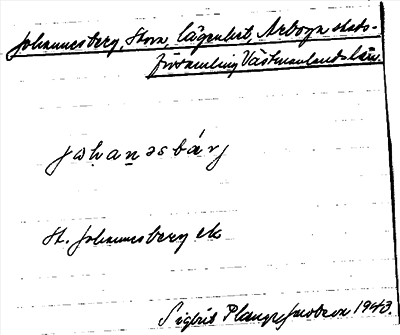 Johannesberg, Stora, lägenhet, Arboga stads-
församling Västmanlands län.
johanəsbárj
St. Johannesberg ek
Sigbrit Plænge Jacobson 1943.